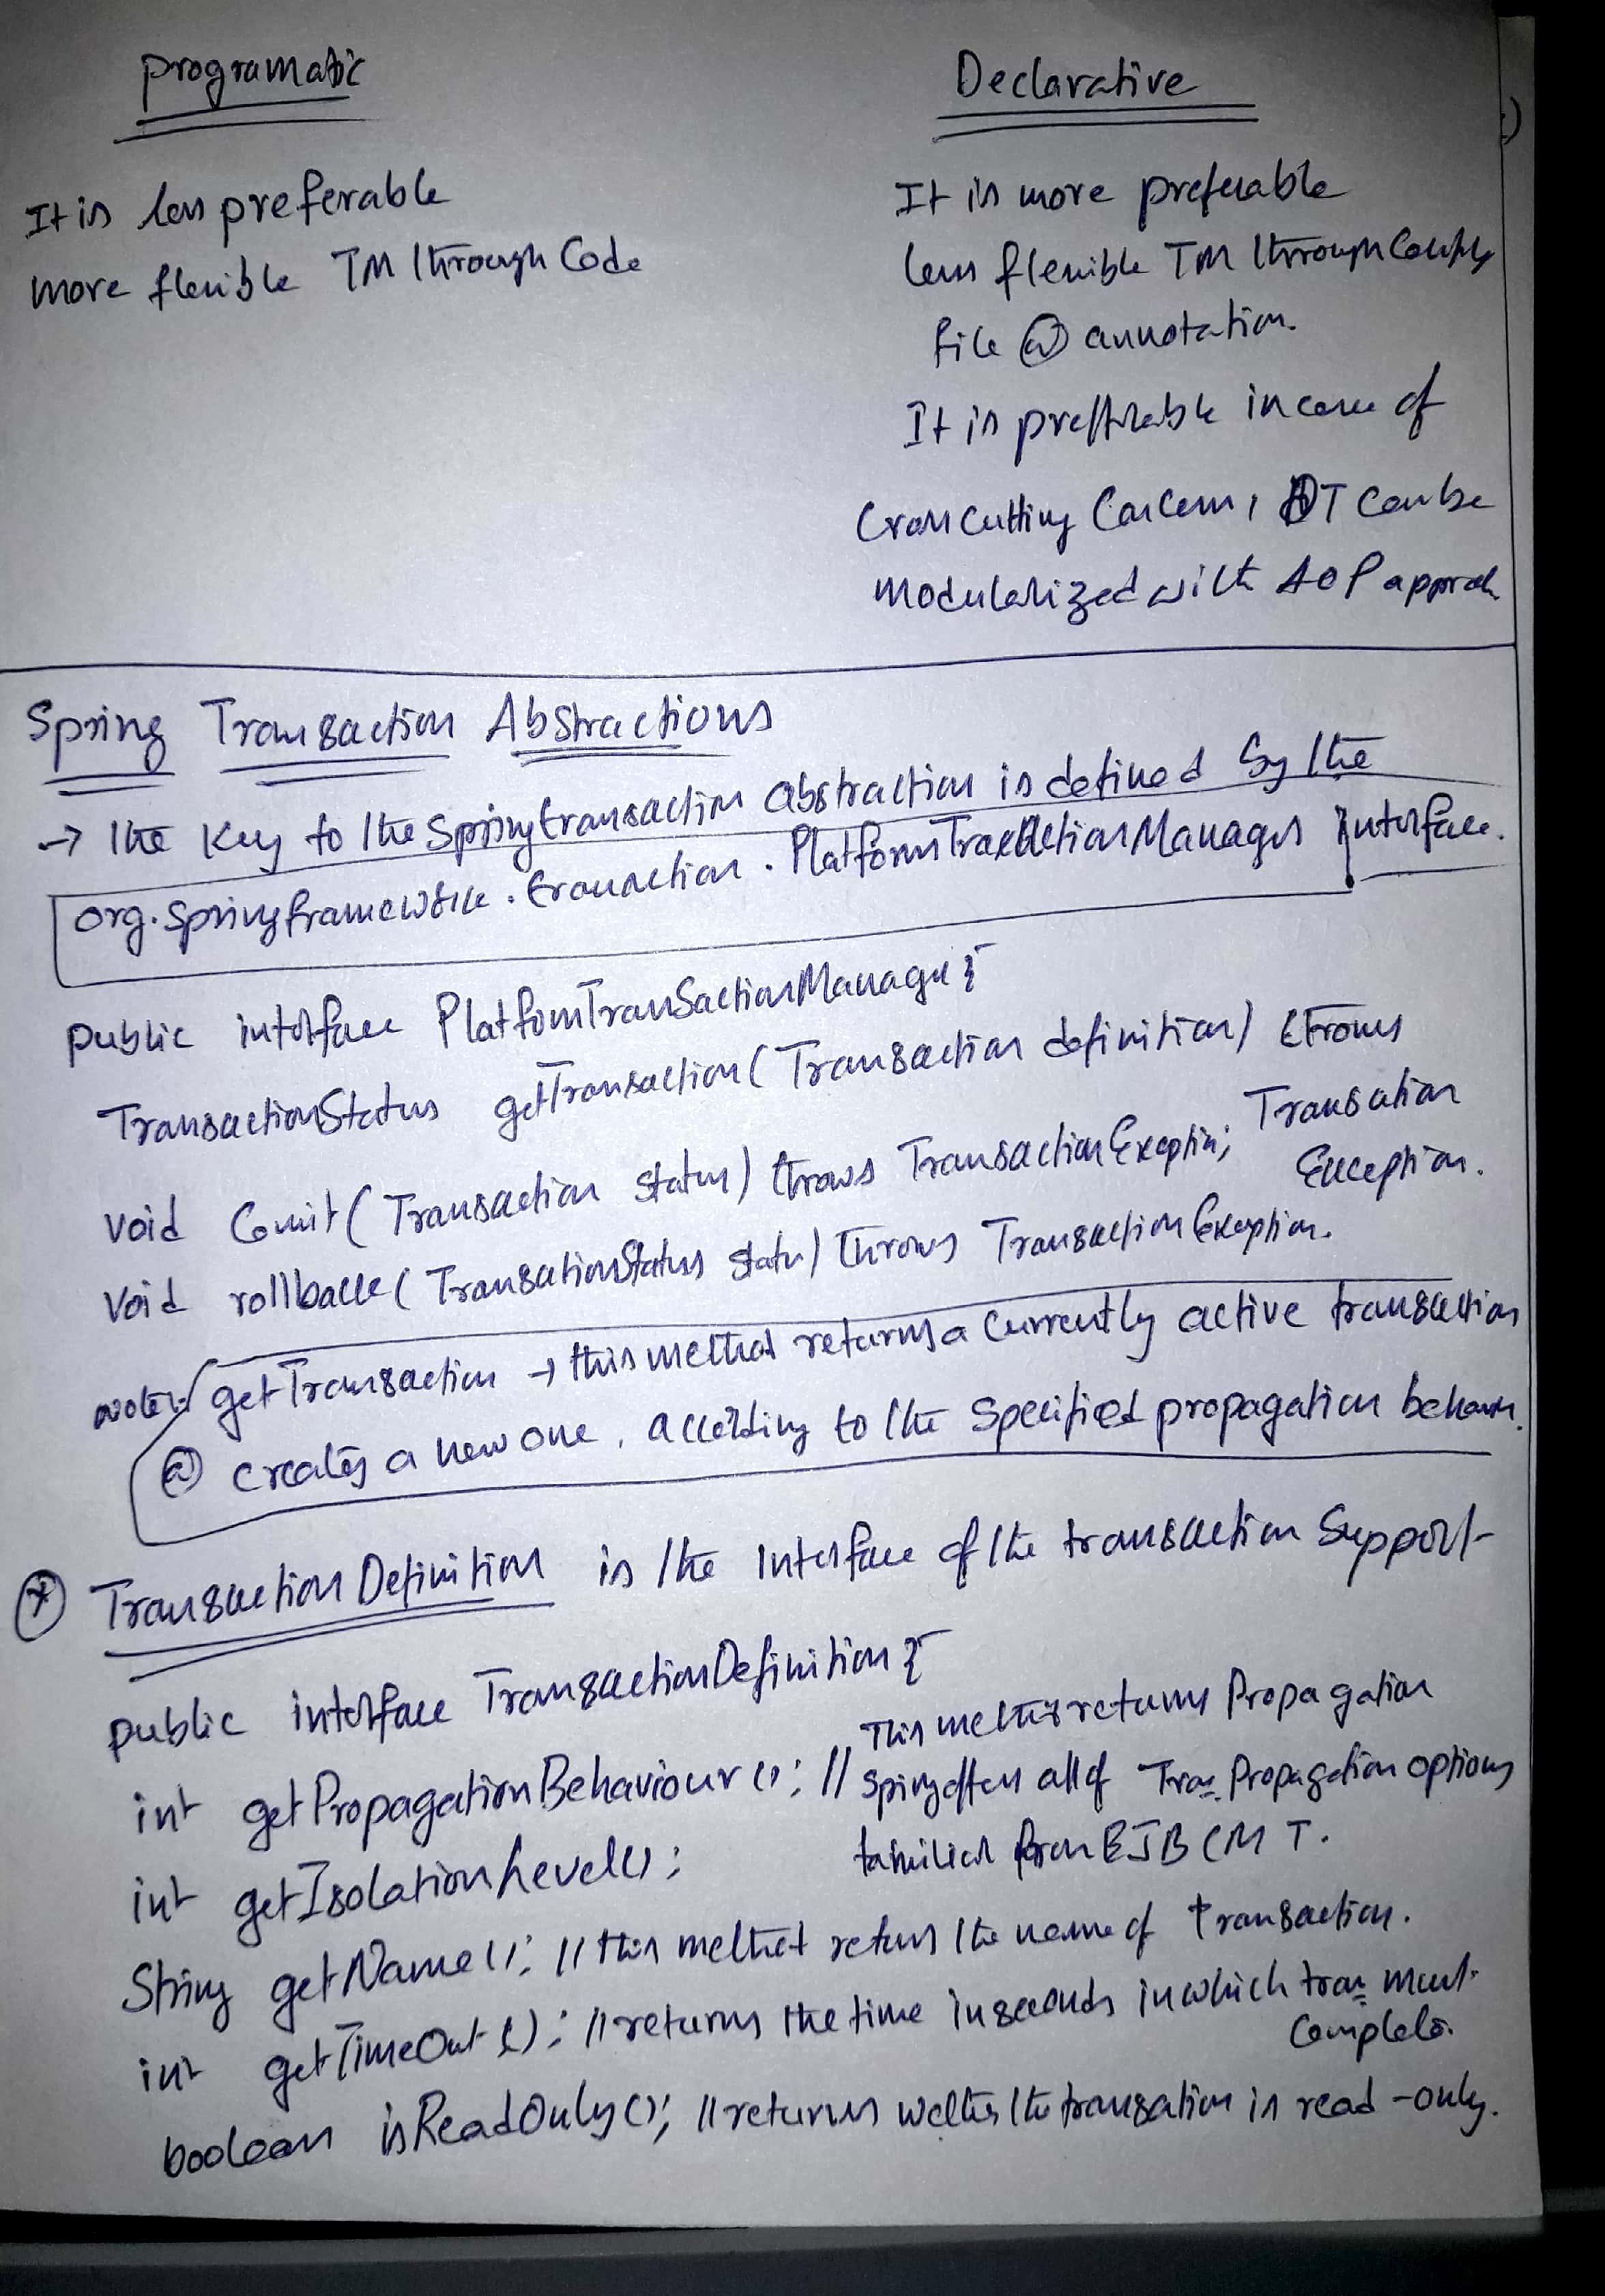 programatic
It is less preferable
more flexible TM through Code
Declarative
It is more preferable
less flexible TM through Config
file @ annotation.
It is preferable incase of
Cross cutting Concern, DT can be
Modularized with AOP approch
Spring Transaction Abstractions
→ The Key to the Spring transaction abstraction is defined by the
org.springframework.transaction.PlatformTransactionManager interface.
public interface PlatformTransactionManager {
TransactionStatus getTransaction(Transaction definition) throws
Transaction
Exception.
void Commit(Transaction status) throws TransactionException;
void rollback(TransactionStatus status) throws TransactionException.
note:- getTransaction → this method returns a currently active transaction
@ creates a new one, according to the specified propagation behavior.
* TransactionDefinition is the interface of the transaction support
public interface TransactionDefinition {
int getPropagationBehaviour(); // This method returns Propagation
spring offers all of Trans Propagation options
familiar from EJB CMT.
int getIsolationLevel();
String getName(); // this method return the name of transaction.
int getTimeOut(); // returns the time in seconds in which trans must
Complete.
boolean isReadOnly(); // returns wether the transation is read-only.